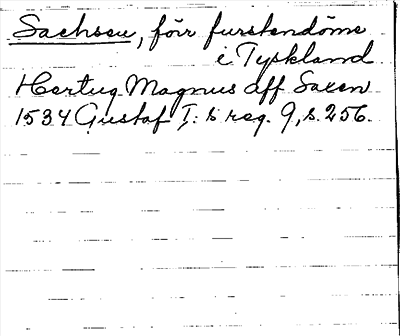 Sachsen, förr furstendöme
i Tyskland
Hertug Magnus aff Saxen
1534 Gustaf I:s reg. 9, s. 256.